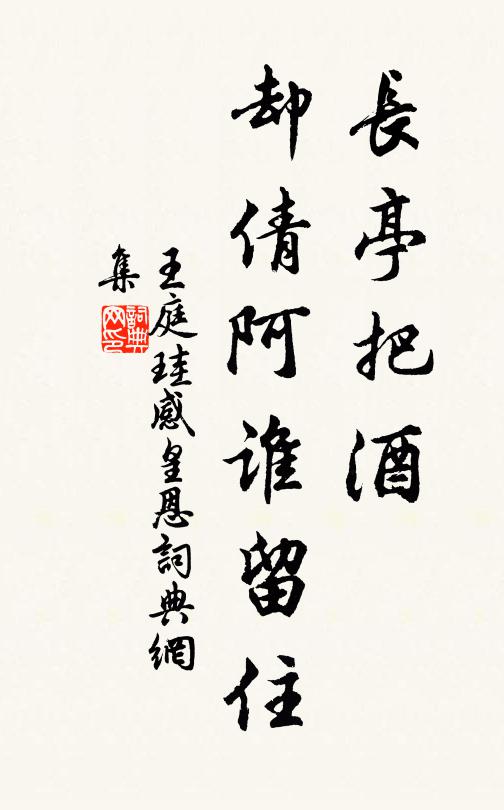 長亭把酒
却倩阿誰留住
王庭珪感皇恩詞典網
集
詞典
网印